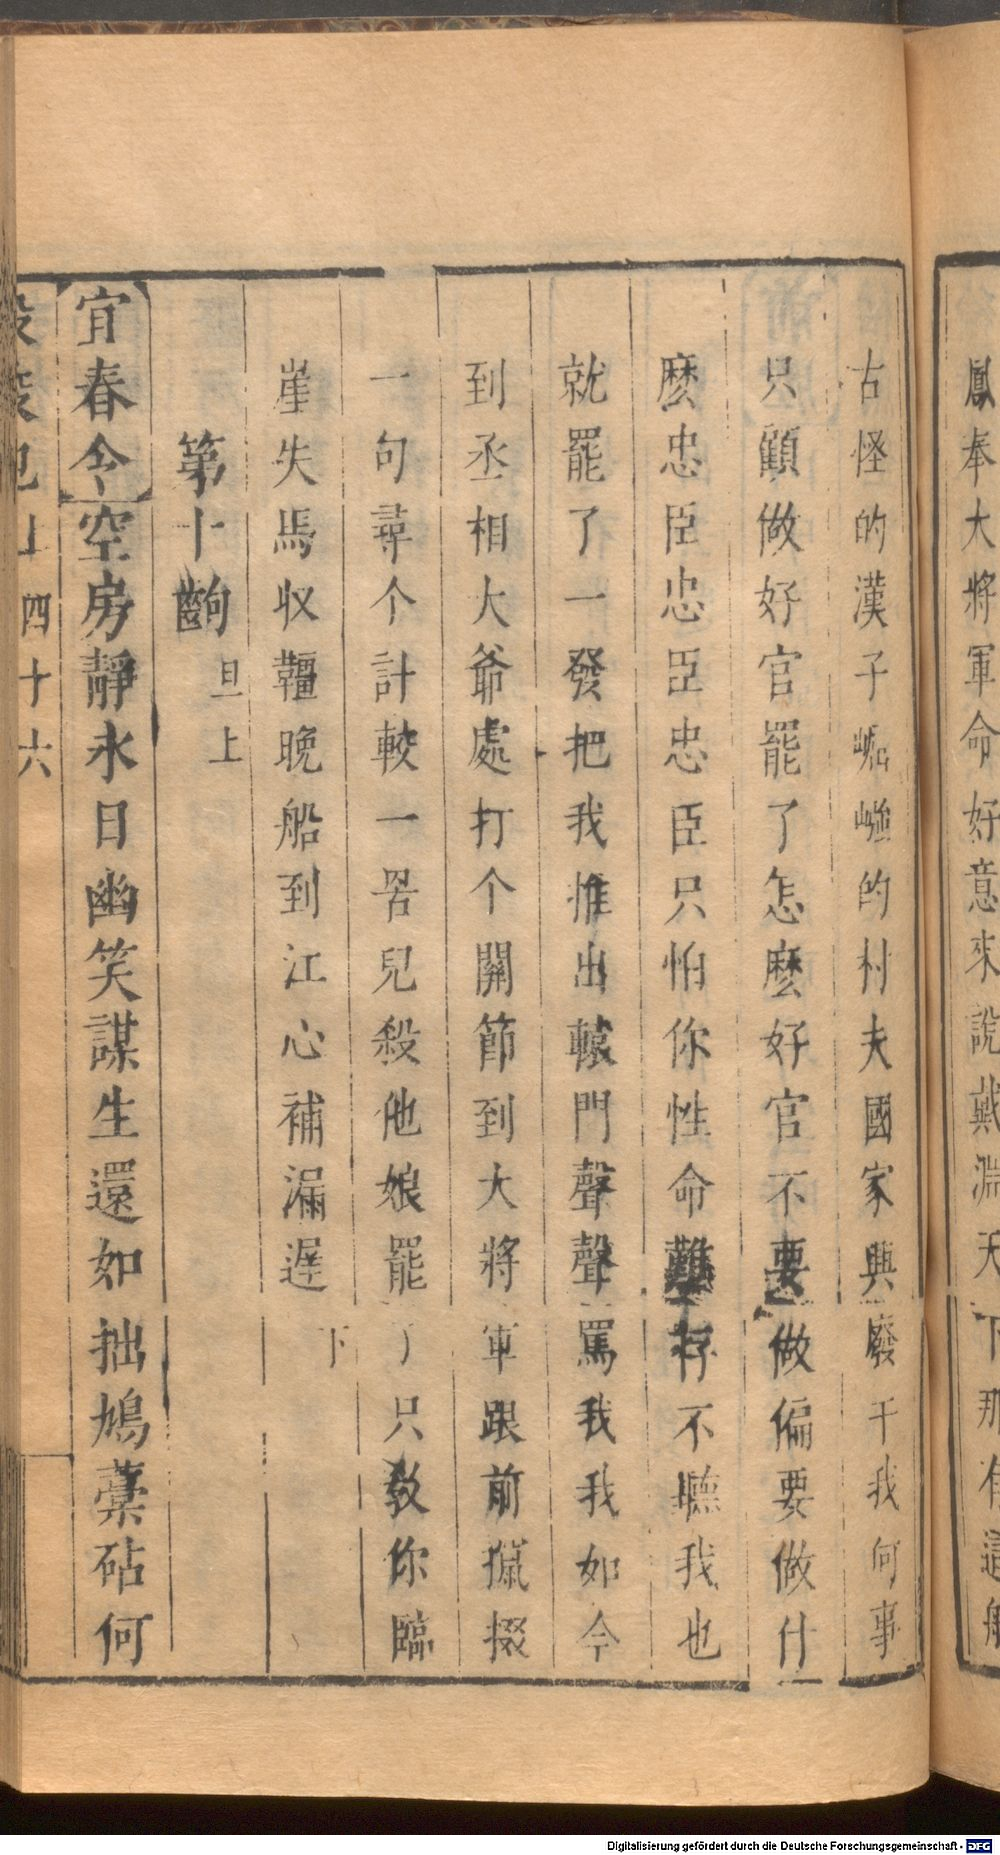 鳳奉大將軍命好意來說戴淵天下那有這般
古怪的漢子崛𡾩的村夫國家興廢干我何事
只顧做好官罷了怎麽好官不要做偏要做什
麽忠臣忠臣忠臣只怕你性命難存不聽我也
就罷了一發把我推出轅門聲聲罵我我如今
到丞相大爺處打个關節到大將軍跟前攛掇
一句尋个計較一罟兒殺他娘罷了只教你臨
崖失馬收韁晚船到江心補漏遲 下
第十齣 旦上
宜春令 空房靜永日幽笑謀生還如拙鳩藁砧何
上 四十六
Digitalisierung gefördert durch die Deutsche Forschungsgemeinschaft - DFG